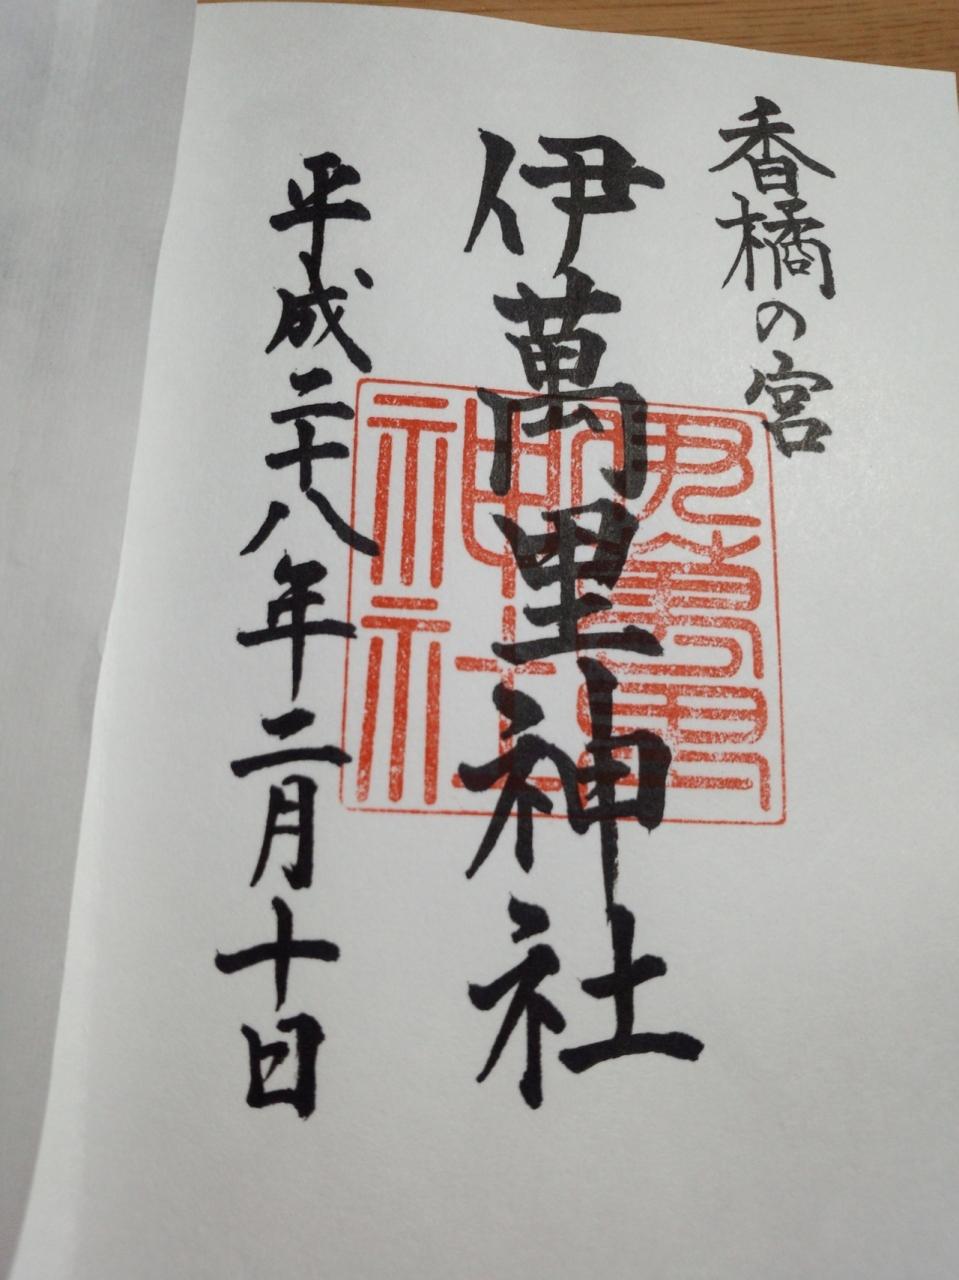 香橘の宮
伊萬里神社
平成二十八年二月十日
伊萬里神社